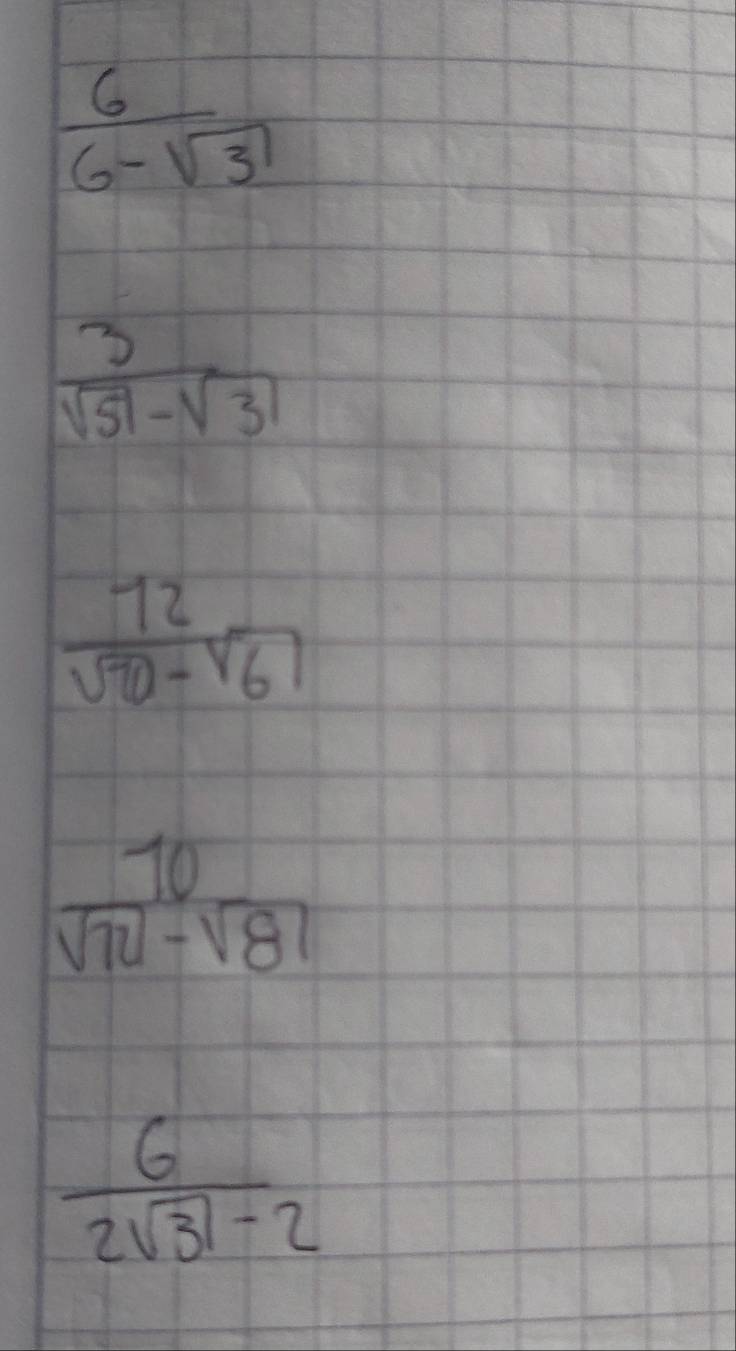 6
6-√3
3
√5-√3
12
√10-√6
10
√12-√8
6
2√3-2